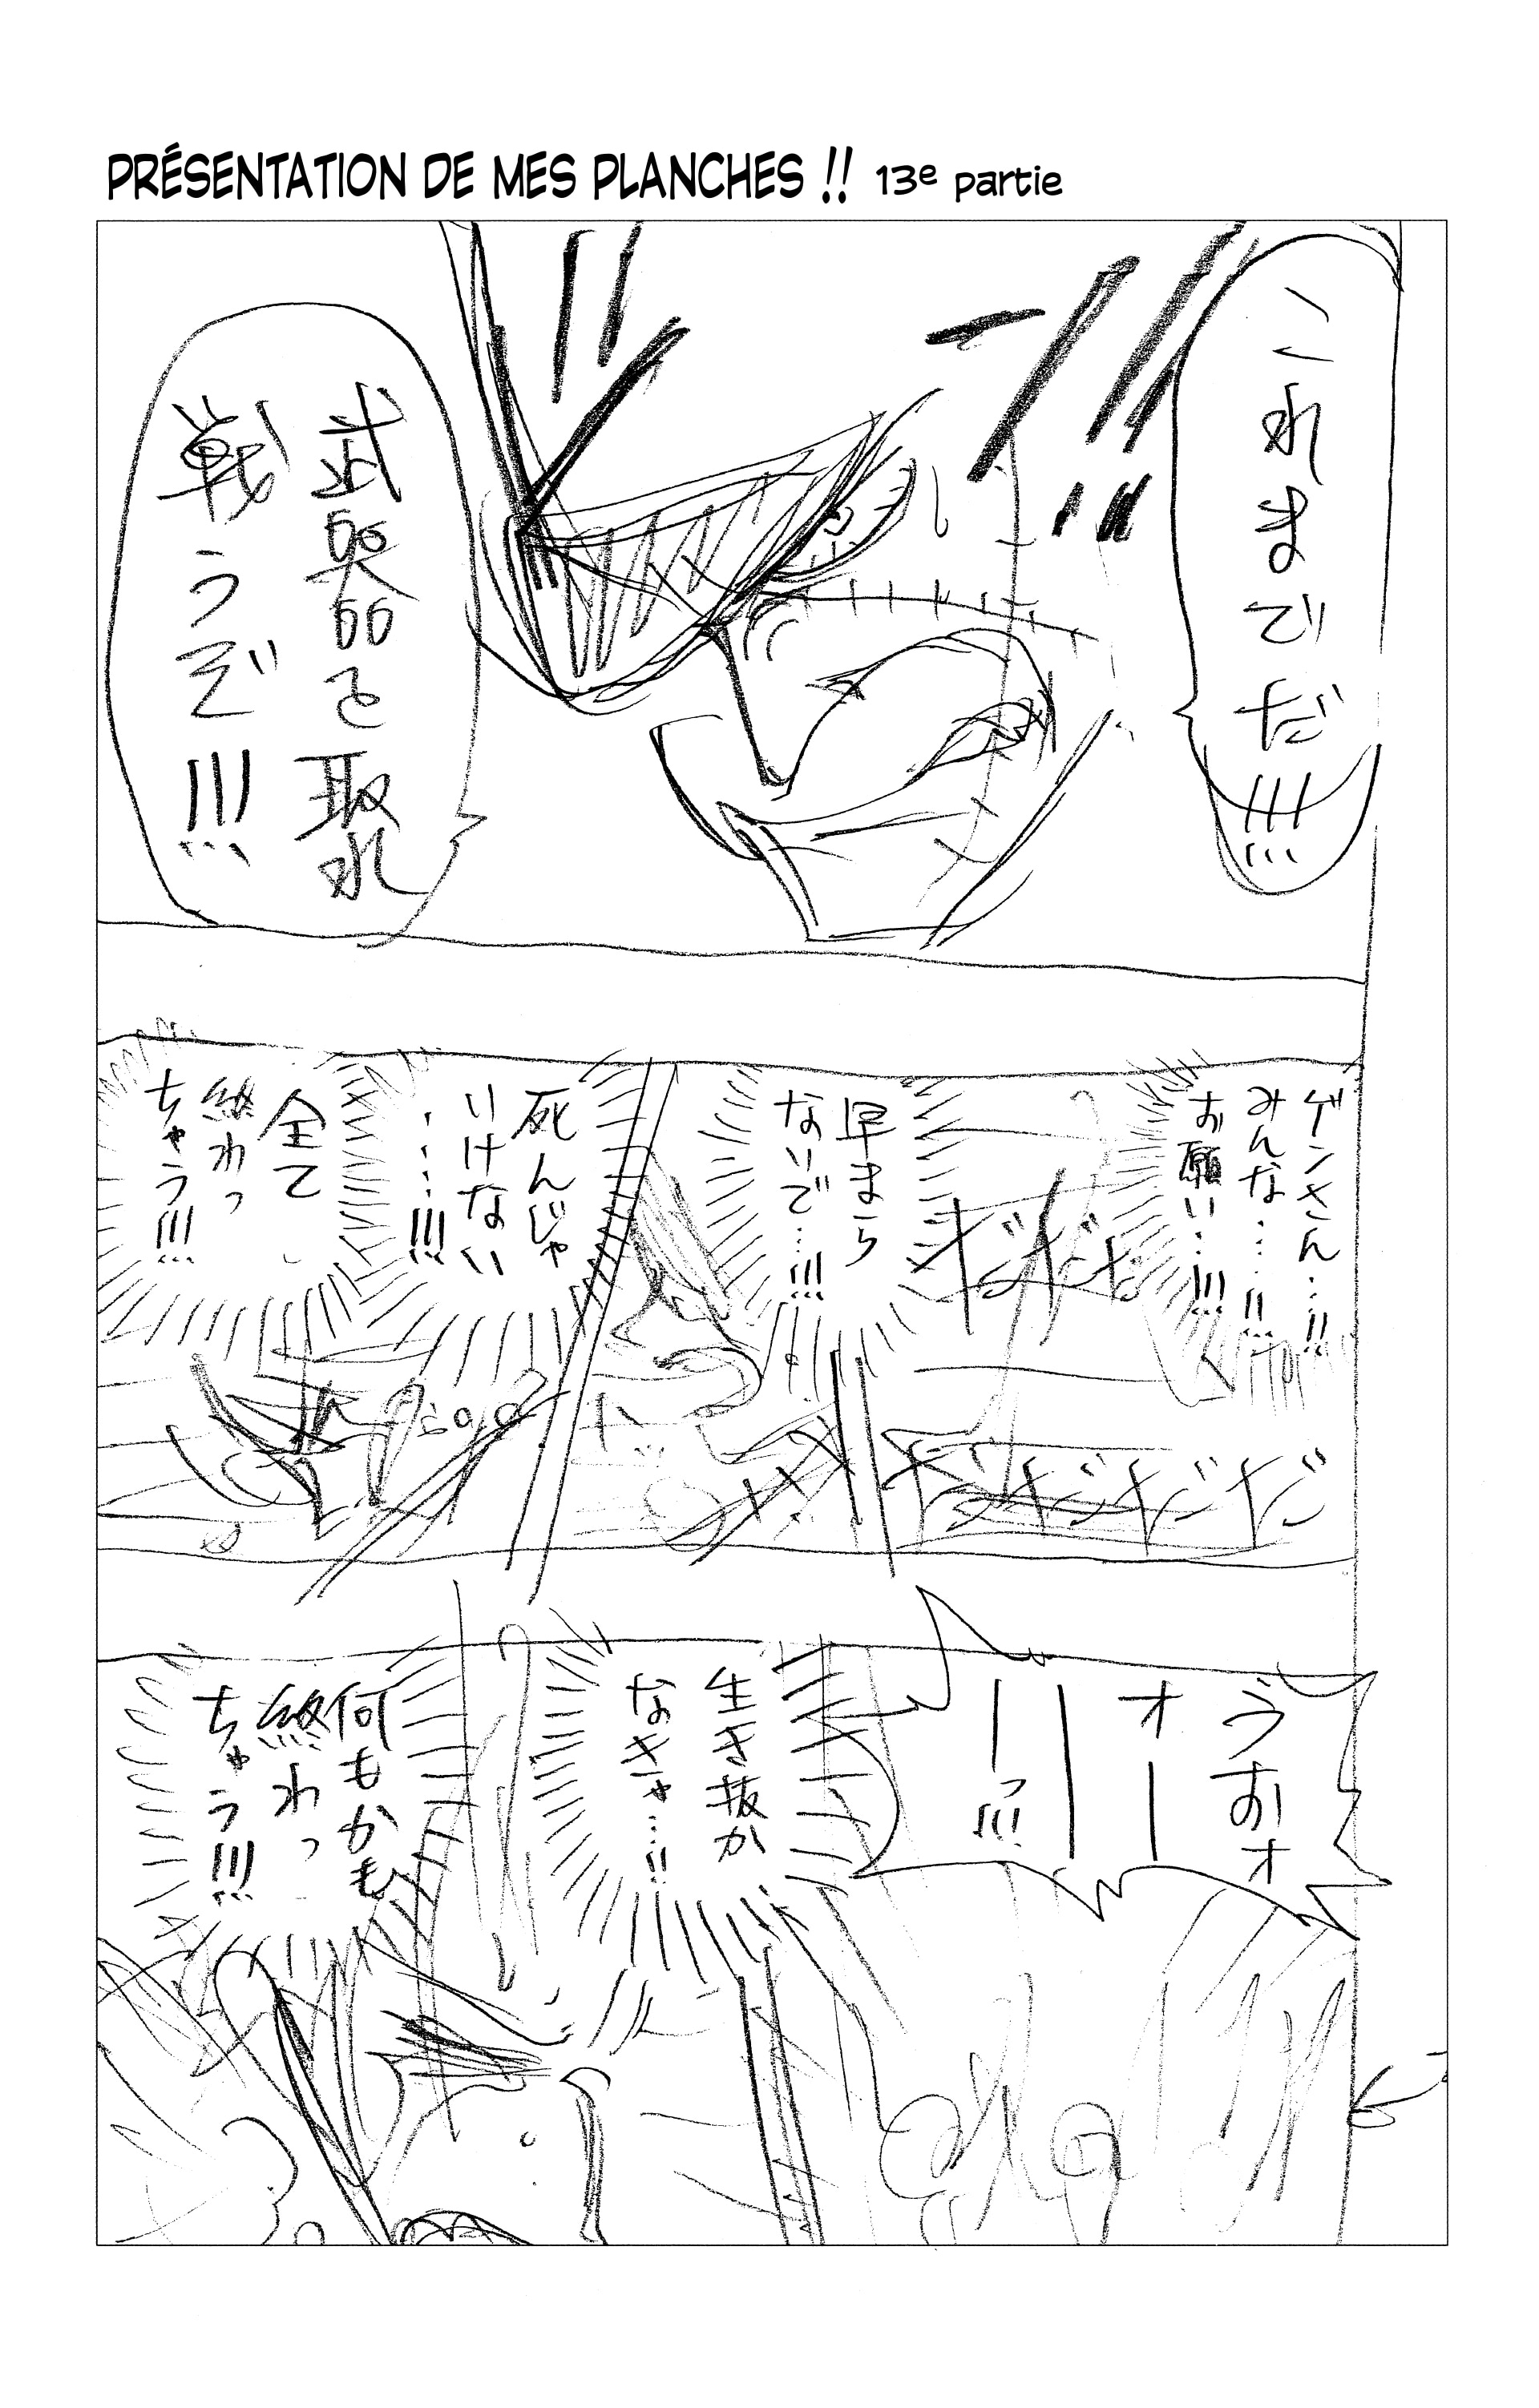 PRÉSENTATION DE MES PLANCHES !! 13e partie
これまでだ!!!
武器を取れ
戦うぞ!!!
ゲンさん…!!
みんな…!!
お願い…!!!
ダダダ
ダダダダダ
早まら
ないで…!!!
死んじゃ
いけない
…!!!
全て
終わっ
ちゃう!!!
ゔおオ
オー
ー
ーっ!!!
生き抜か
なきゃ…!!
何もかも
終わっ
ちゃう!!!